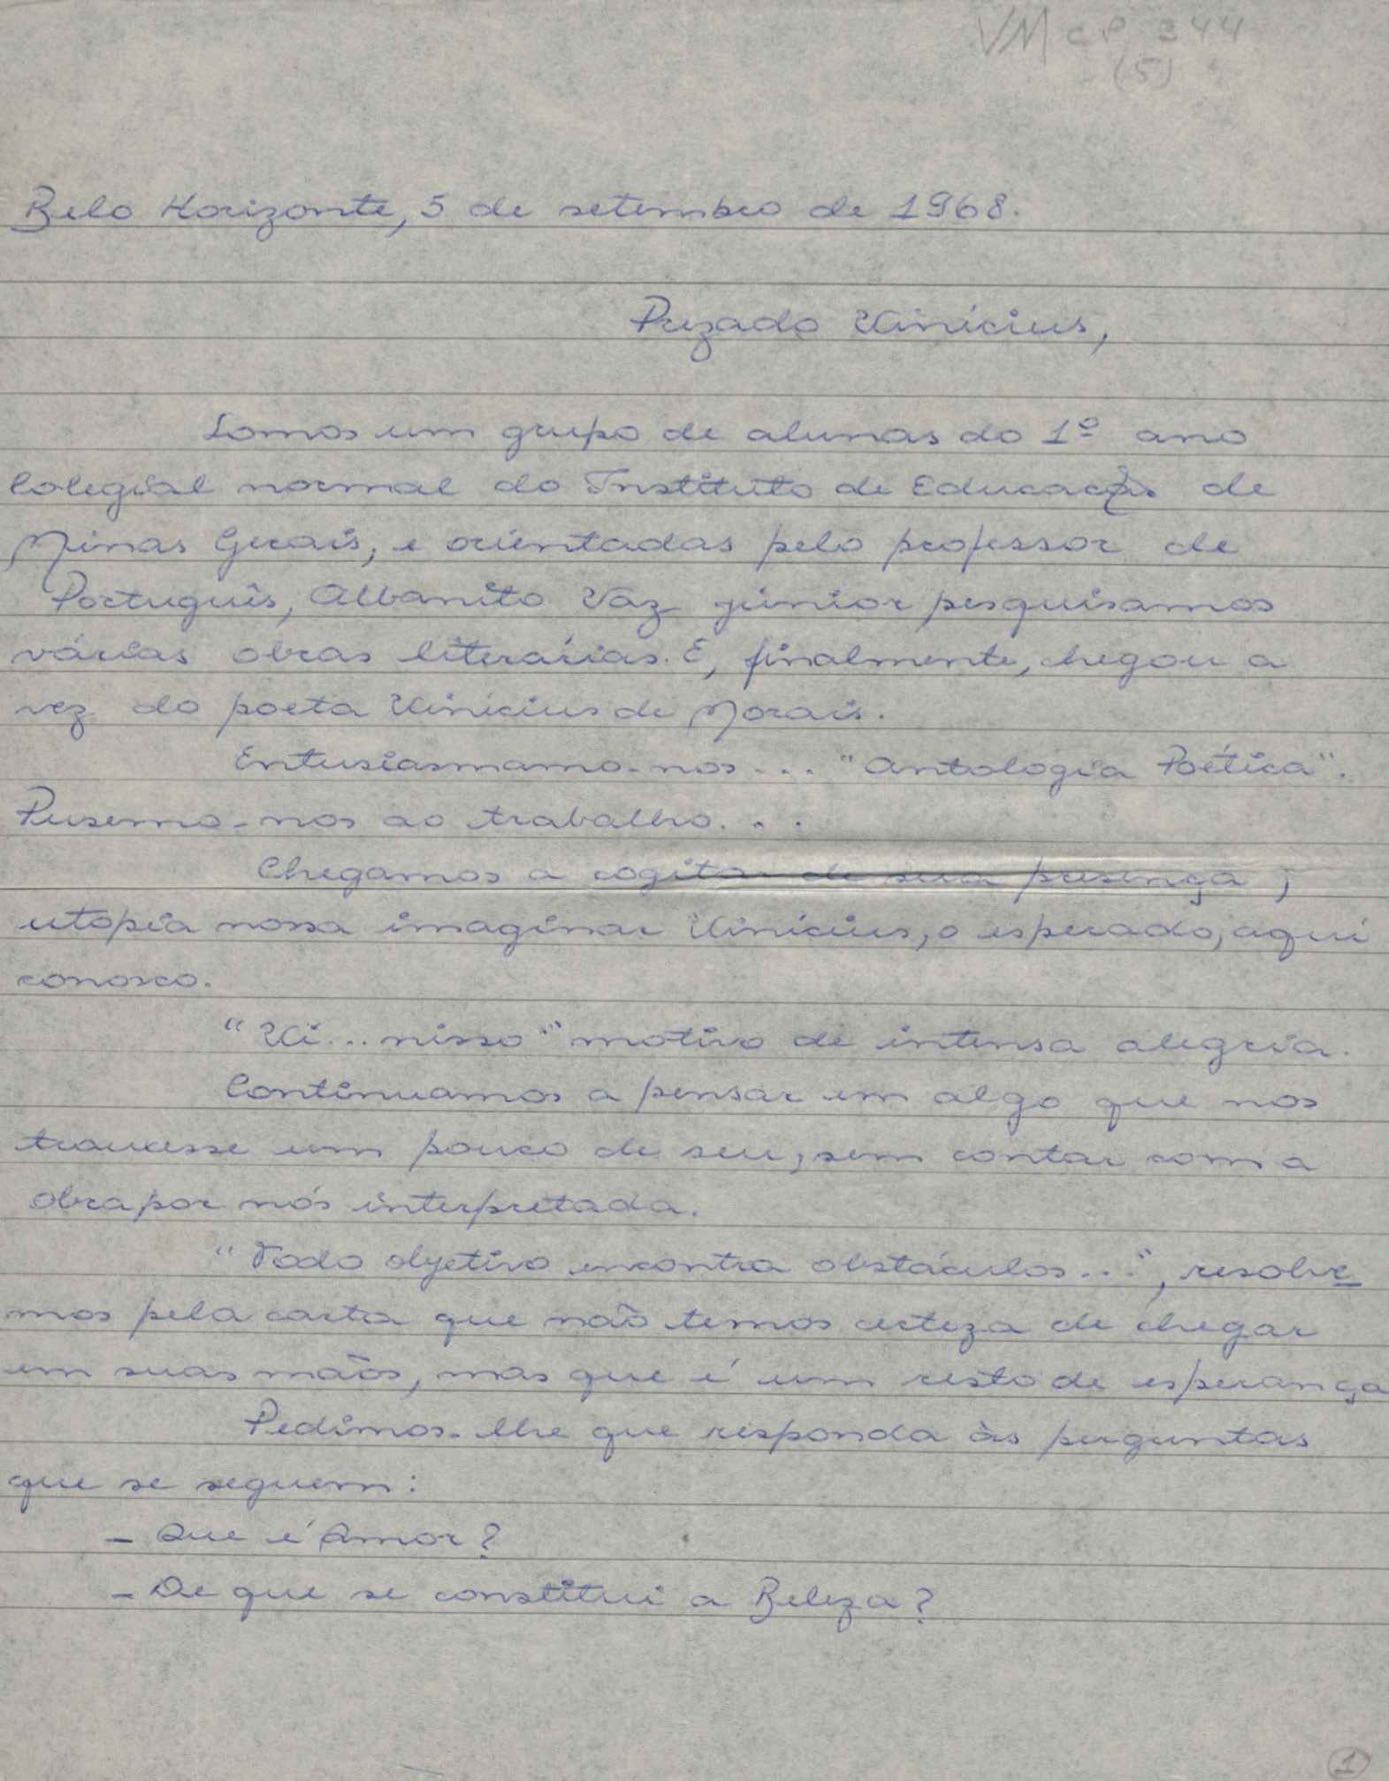 VM CP 344
(5)
Belo Horizonte, 5 de setembro de 1968.
Prezado Vinícius,
Somos um grupo de alunas do 1º ano
Colegial normal do Instituto de Educação de
Minas Gerais, e orientadas pelo professor de
Português, Albanito Vaz júnior pesquisamos
várias obras literárias. E, finalmente, chegou a
vez do poeta Vinícius de Morais.
Entusiasmamo-nos... "Antologia Poética".
Pusemo-nos ao trabalho...
Chegamos a cogitar de sua presença;
utopia nossa imaginar Vinícius, o esperado, aqui
conosco.
"Vi...nisso" motivo de intensa alegria.
Continuamos a pensar em algo que nos
trouxesse um pouco de seu, sem contar com a
obra por nós interpretada.
"Todo objetivo encontra obstáculos...", resolve
mos pela carta que não temos certeza de chegar
em suas mãos, mas que é um resto de esperança
Pedimos-lhe que responda às perguntas
que se seguem:
- Que é Amor?
- De que se constitui a Beleza?
1